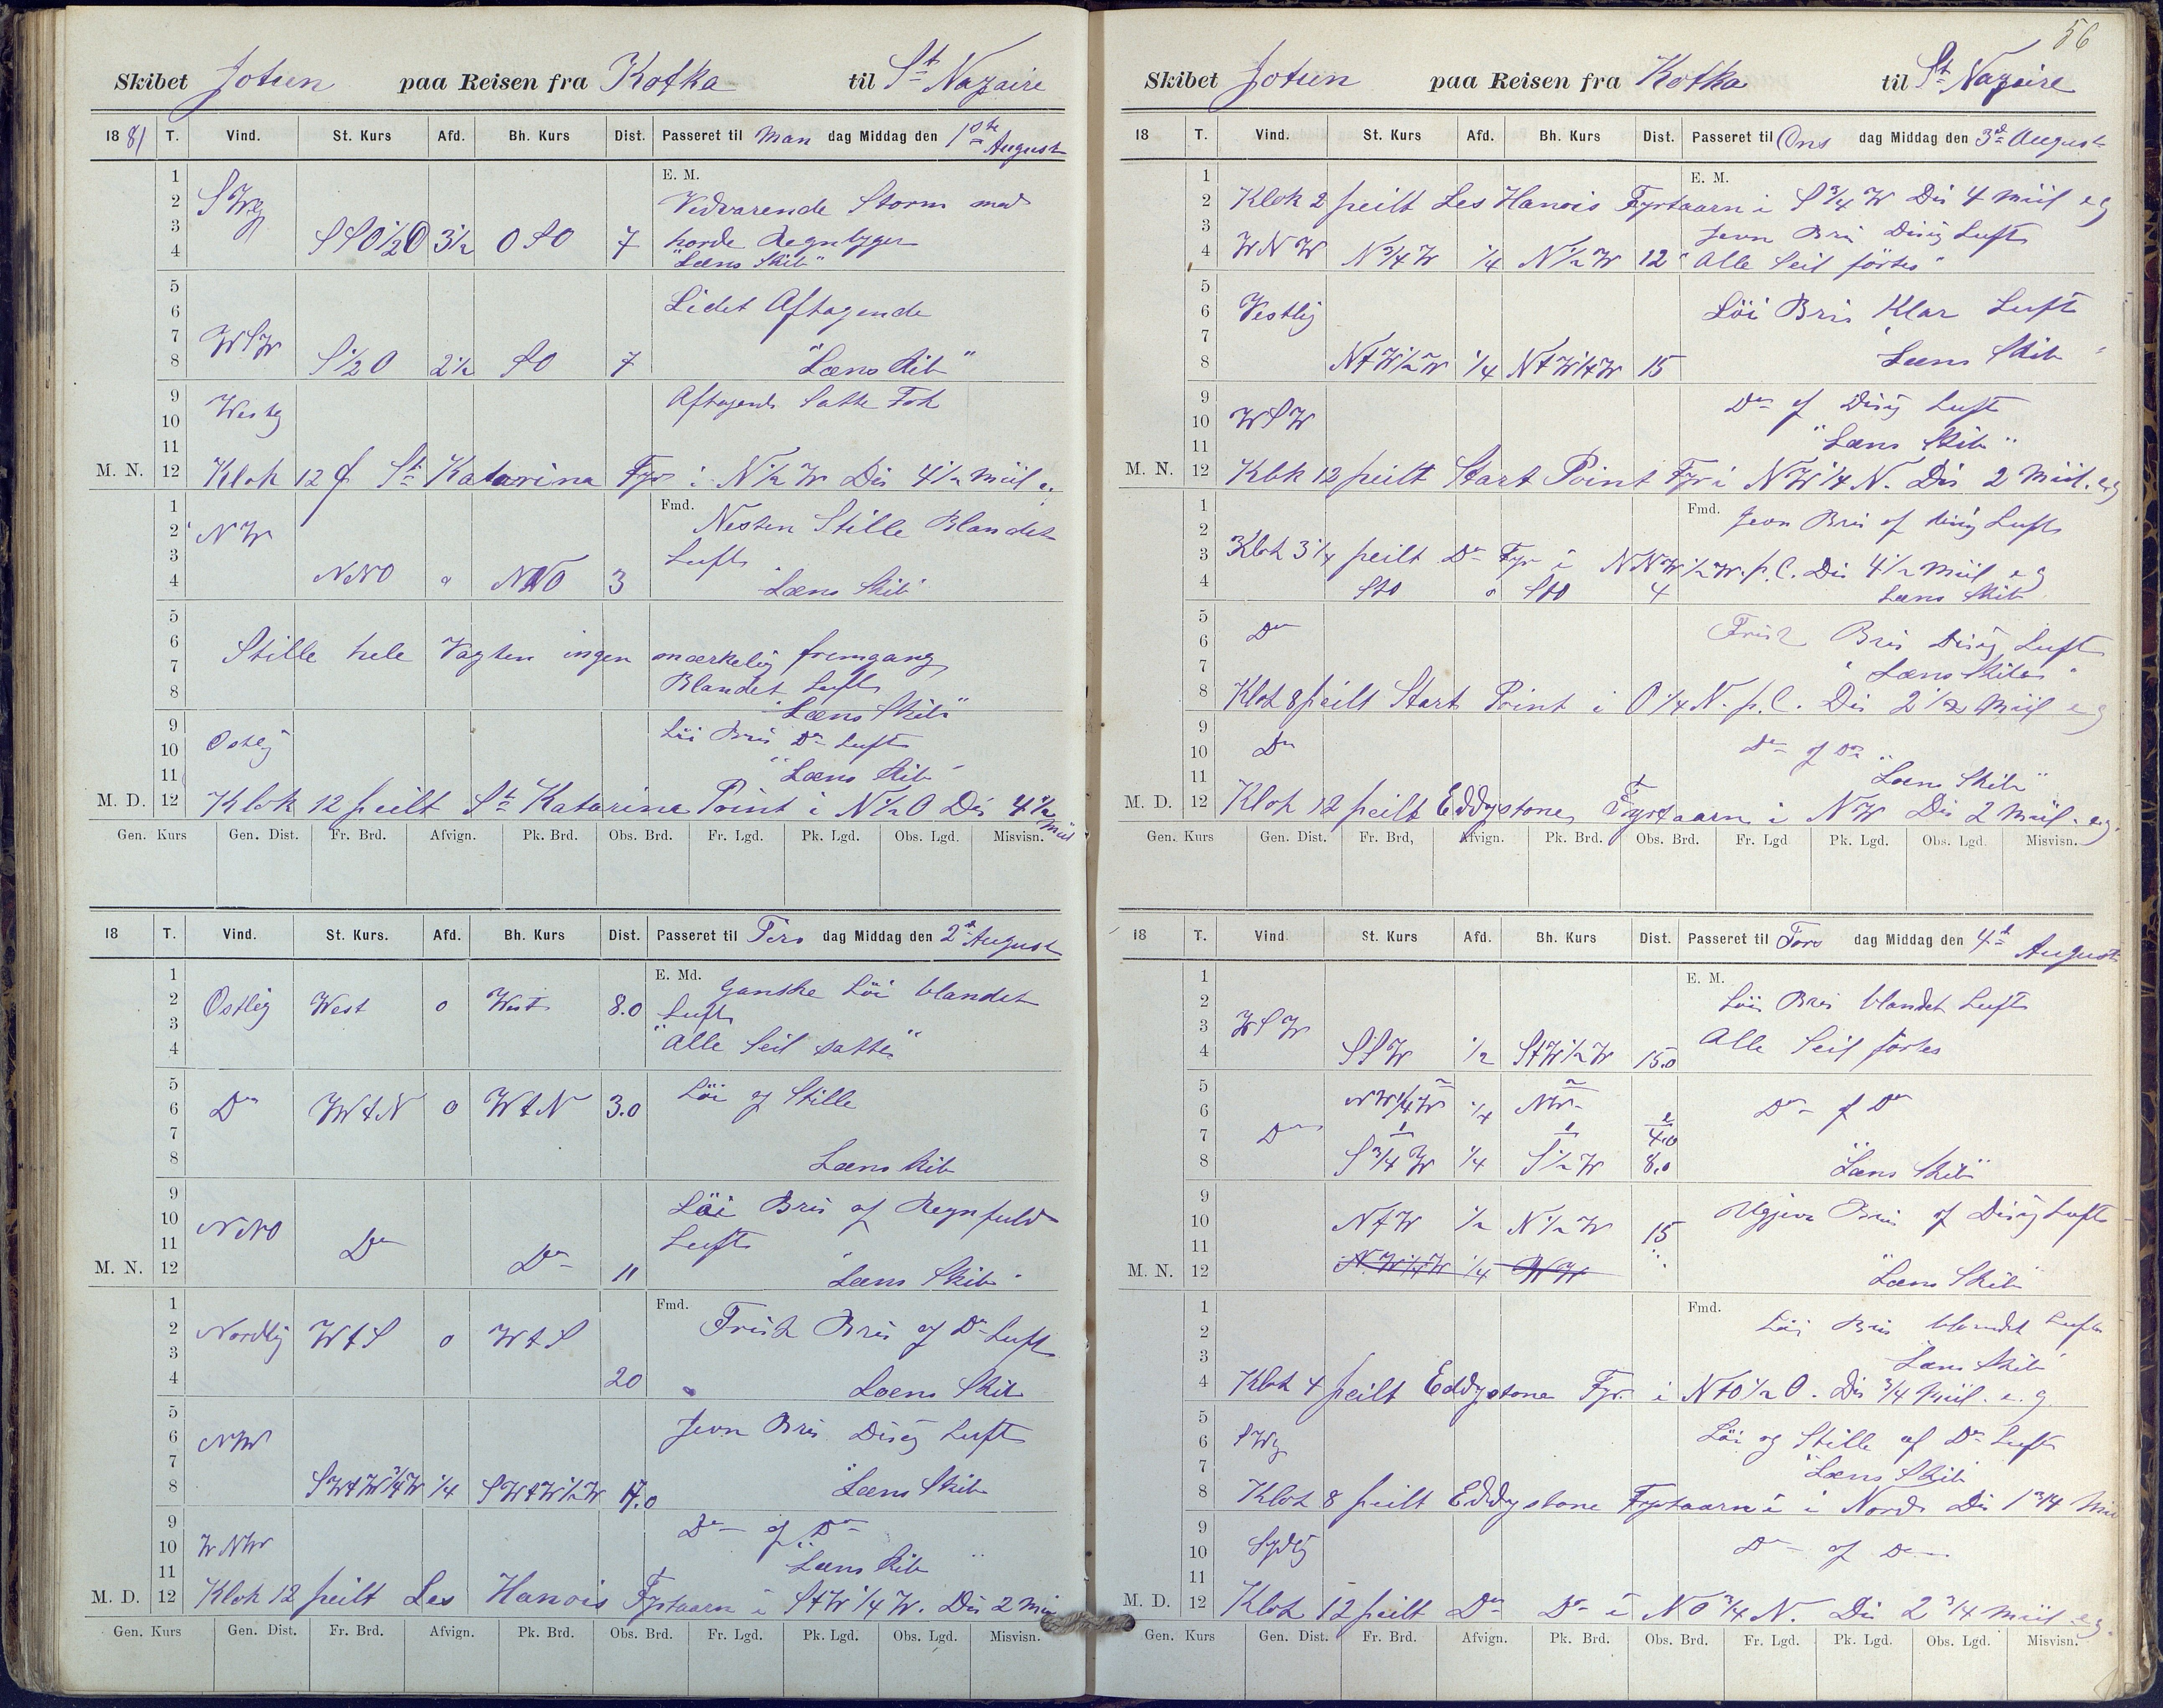 Skibet Jotun paa Reisen fra Kotka til St Nazaire
1881 T. Vind. St. Kurs Afd. Bh. Kurs Dist. Passeret til Man dag Middag den 1ste August
E. M.
1
2 SWlig Vedvarende Storm med
3 haarde Regnbyger
4 SSO½O 3½ OSO 7 "Læns Skib"
5
6 Lidet Aftagende
7 WSW
8 S½O 2½ SO 7 "Læns Skib"
9 Aftagende Satte Fok
10 Westlig
11
M. N. 12 Klok 12 St Katarina Fyr i N½W Dis 4½ Miil
Fmd.
1 Nesten Stille Blandet
2 NW
3 Luft
4 NNO o NNO 3 Læns Skib
5
6 Stille hele Vagten ingen mærkelig fremgang
7 Blandet Luft
8 "Læns Skib"
9 Löi Bris Do Luft
10 Ostlig
11 "Læns Skib"
M. D. 12 Klok 12 peilt St Katarina Point i N½O Dis 4½ Miil
Gen. Kurs Gen. Dist. Fr. Brd. Afvign. Pk. Brd. Obs. Brd. Fr. Lgd. Pk. Lgd. Obs. Lgd. Misvisn.
18 T. Vind. St. Kurs. Afd. Bh. Kurs Dist. Passeret til Tirs dag Middag den 2d August
E. Md.
1 Ganske Löi blandet
2 Ostlig West o West 8.0 Luft
3
4 "Alle Seil satte"
5 Löi og Stille
6 Do WtN o WtN 3.0
7
8 Læns Skib
9 Löi Bris og Regnfuld
10 NNO
11 Do Luft
M. N. 12 Do 11 "Læns Skib"
Fmd.
1 Frisk Bris og Do Luft
2 Nordlig WtS o WtS
3
4 20 Læns Skib
5 Jevn Bris Disig Luft
6 NW
7
8 SWtW¾W ¼ SWtW½W 17.0 "Læns Skib
9 Do og Do
10 WNW
11 "Læns Skib"
M. D. 12 Klok 12 peilt Les Hanois Fyrtaarn i StW¼W. Dis 2 Miil
Gen. Kurs Gen. Dist. Fr. Brd. Afvign. Pk. Brd. Obs. Brd. Fr. Lgd. Pk. Lgd. Obs. Lgd. Misvisn.
56
Skibet Jotun paa Reisen fra Kotka til St Nazaire
18 T. Vind. St. Kurs Afd. Bh. Kurs Dist. Passeret til Ons dag Middag den 3d August
E. M.
1
2 Klok 2 peilt Les Hanois Fyrtaarn i S¾W Dis 4 Miil e g
3 Jevn Bris Disig Luft
4 WNW N¾W ¼ N½W 12 "Alle Seil förtes"
5
6 Vestlig Löi Bris Klar Luft
7
8 NtW½W ¼ NtW¼W 15 "Læns Skib"
9 Do og Disig Luft
10 WSW
11 "Læns Skib"
M. N. 12 Klok 12 peilt Start Point Fyr i NW¼N. Dis 2 Miil. e.g
Fmd.
1 Jevn Bris og disig Luft
2
3 Klok 3¼ peilt Do Fyr i NNW½W. p.C. Dis 4½ Miil e g
4 StO o StO 4 Læns Skib
5
6 Do Frisk Bris Disig Luft
7 "Læns Skib"
8 Klok 8 peilt Start Point i O¼N. p.C. Dis 2½ Miil e g
9
10 Do Do og Do
11 "Læns Skib"
M. D. 12 Klok 12 peilt Eddystone Fyrtaarn i NW Dis 2 Miil. e.g.
Gen. Kurs Gen. Dist. Fr. Brd, Afvign. Pk. Brd. Obs. Brd. Fr. Lgd Pk. Lgd. Obs. Lgd. Misvisn.
18 T. Vind. St. Kurs Afd. Bh. Kurs Dist. Passeret til Tors dag Middag den 4d August
E. M.
1
2 Löi Bris blandet Luft
3 WSW
4 SSW ½ StW½W 15.0 Alle Seil förtes
5
6 NW¼W ¼ NW Do og Do
7 Do 4.0
8 S¾W ¼ S½W 8.0 "Læns Skib"
9
10 NtW ½ N½W 15 Ugjevn Bris og Disig Luft
11
M. N. 12 NW¼W ¼ NW "Læns Skib
Fmd.
1 Löi Bris blandet Luft
2
3 Læns Skib
4 Klok 4 peilt Eddystone Fyr. i NtO½O. Dis ¾ Miil. e. g
5
6 SWlig Löi og Stille og Do Luft
7 "Læns Skib
8 Klok 8 peilt Eddystone Fyrtaarn i Nord Dis 1¾ Miil
9
10 Sydlig Do og Do
11
M. D. 12 Klok 12 peilt Do Do i NO¾N. Dis 2¾ Miil e.g.
Gen. Kurs Gen. Dist. Fr. Brd. Afvign. Pk. Brd. Obs. Brd. Fr. Lgd. Pk. Lgd. Obs. Lgd. Misvisn.